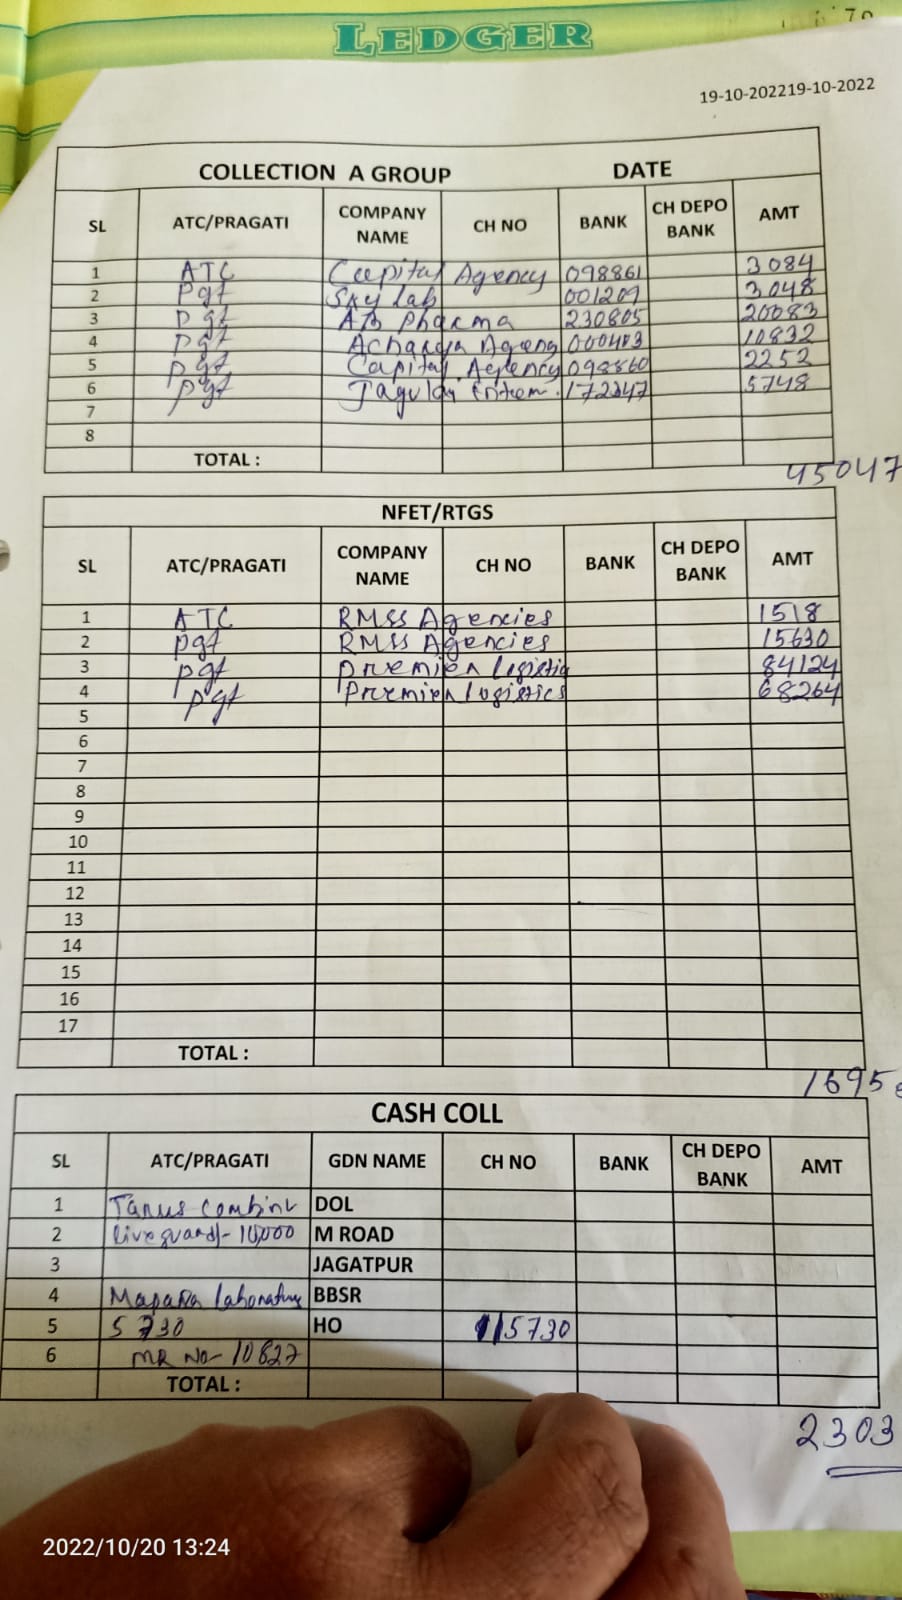 LEDGER
19-10-202219-10-2022
COLLECTION A GROUP DATE
SL ATC/PRAGATI COMPANY NAME CH NO BANK CH DEPO BANK AMT
1 ATC Capital Agency 098861 3084
2 Pgt Sky lab 001209 3048
3 Pgt AB Pharma 230805 20083
4 Pgt Acharya 10832
5 Pgt Capital Agency 098860 2252
6 Pgt 172347 5748
7
8
TOTAL :
45047
NFET/RTGS
SL ATC/PRAGATI COMPANY NAME CH NO BANK CH DEPO BANK AMT
1 ATC RMSS Agencies 1518
2 Pgt RMSS Agencies 15630
3 Pgt Premier Logistic 84124
4 Pgt Premier Logistics 68264
5
6
7
8
9
10
11
12
13
14
15
16
17
TOTAL :
1695
CASH COLL
SL ATC/PRAGATI GDN NAME CH NO BANK CH DEPO BANK AMT
1 DOL
2 Liveguard - 10,000 M ROAD
3 JAGATPUR
4 BBSR
5 5730 HO 115730
6 MR No- 10827
TOTAL :
2303
2022/10/20 13:24